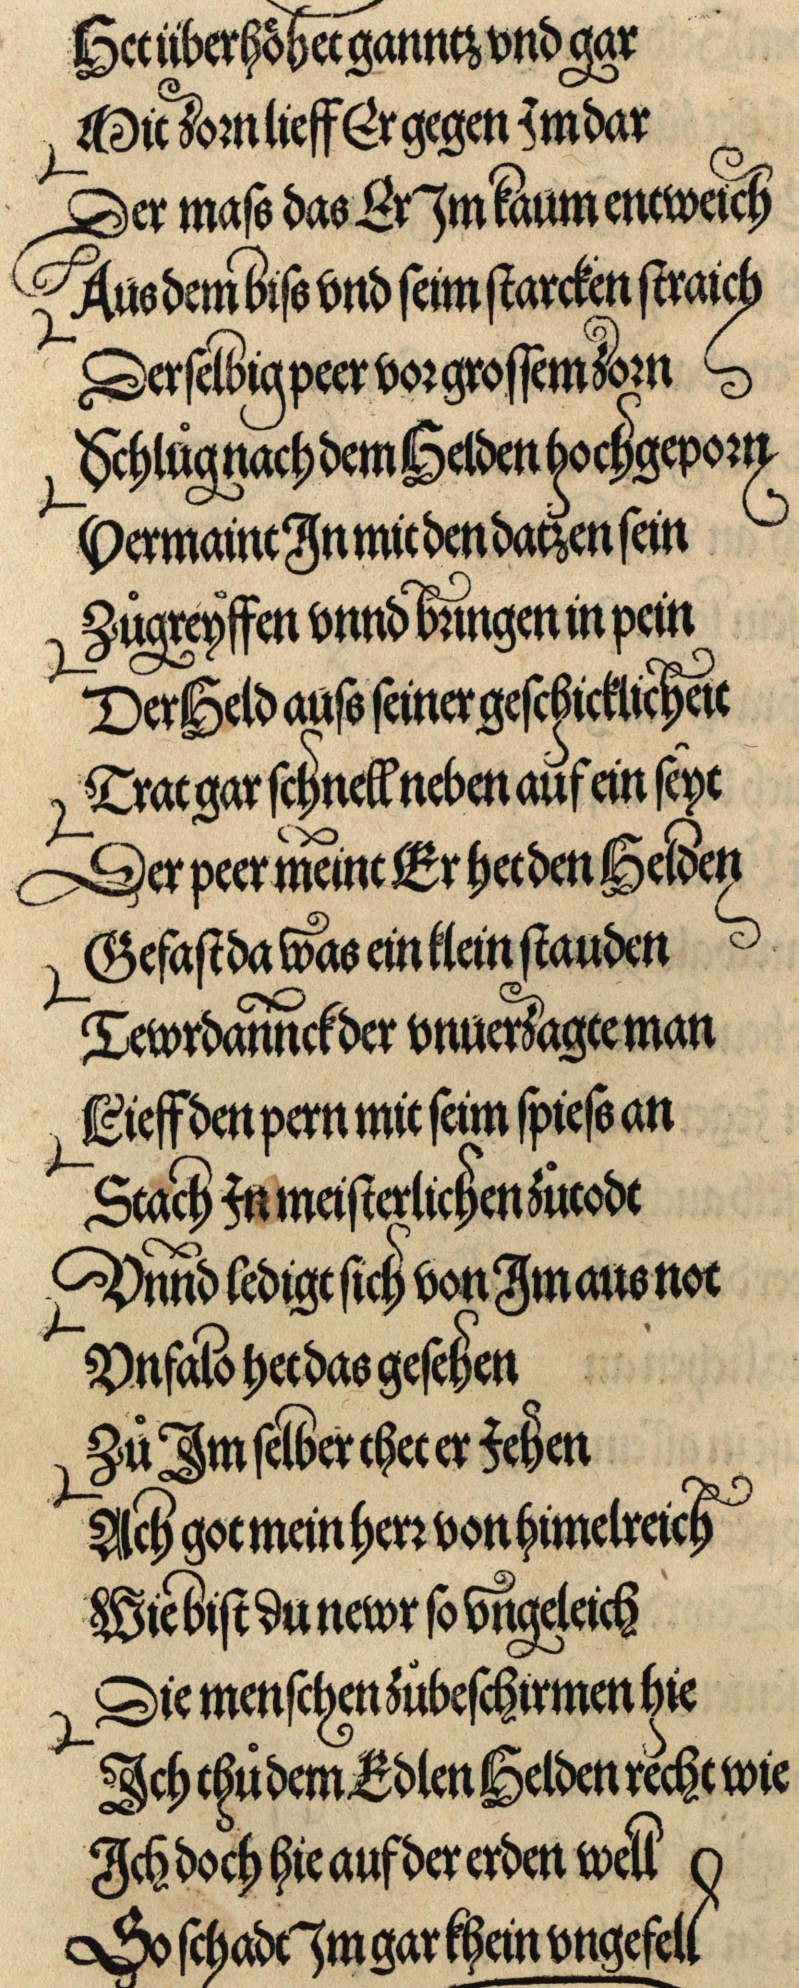 Het überhöhet ganntz vnd gar
Mit zorn lieff Er gegen Im dar
Der mass das Er Im kaum entweich
Aus dem biss vnd seim starcken straich
Derselbig peer vor grossem zorn
Schlůg nach dem Helden hochgeporn
Vermaint In mit den datzen sein
Zůgreyffen vnnd bringen in pein
Der Held auss seiner geschicklicheit
Trat gar schnell neben auf ein seyt
Der peer meint Er het den Helden
Gefast da was ein klein stauden
Tewrdannck der vnuerzagte man
Lieff den pern mit seim spiess an
Stach In meisterlichen zůtodt
Vnnd ledigt sich von Im aus not
Vnfalo het das gesehen
Zů Im selber thet er Jehen
Ach got mein herr von himelreich
Wie bist du newr so vngeleich
Die menschen zůbeschirmen hie
Ich thů dem Edlen Helden recht wie
Ich doch hie auf der erden well
So schadt Im gar khein vngefell